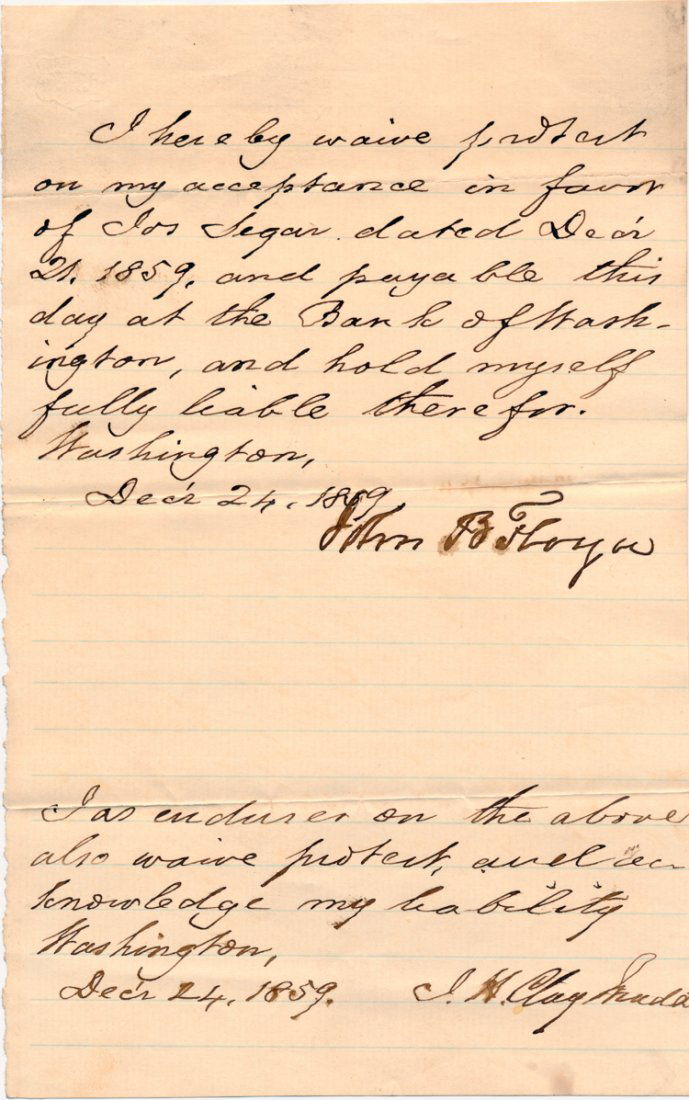 I hereby waive protest
on my acceptance in favor
of Jos Segar dated Dec'r
21. 1859, and payable this
day at the Bank of Wash-
ington, and hold myself
fully liable therefor.
Washington,
Dec'r 24, 1859
John B Floyd
I as endurser on the above
also waive protest, and ac
knowledge my liability
Washington,
Dec'r 24, 1859. J. H. Clay Mudd